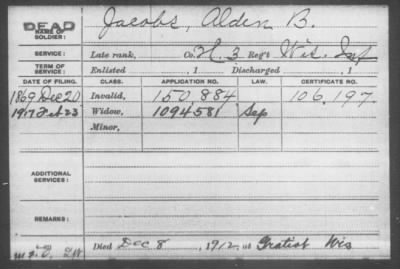 DEAD
NAME OF SOLDIER: Jacobs, Alden B.
SERVICE: Late rank, Co. H. 3 Reg't Wis. Inf
TERM OF SERVICE: Enlisted , 1 Discharged , 1
DATE OF FILING. CLASS. APPLICATION NO. LAW. CERTIFICATE NO.
1869 Dec 20 Invalid, 150,884 106,197.
1917 Feb 23 Widow, 1094581 Sep
Minor,
ADDITIONAL SERVICES:
REMARKS:
Died Dec 8, 1912, at Gratiot Wis